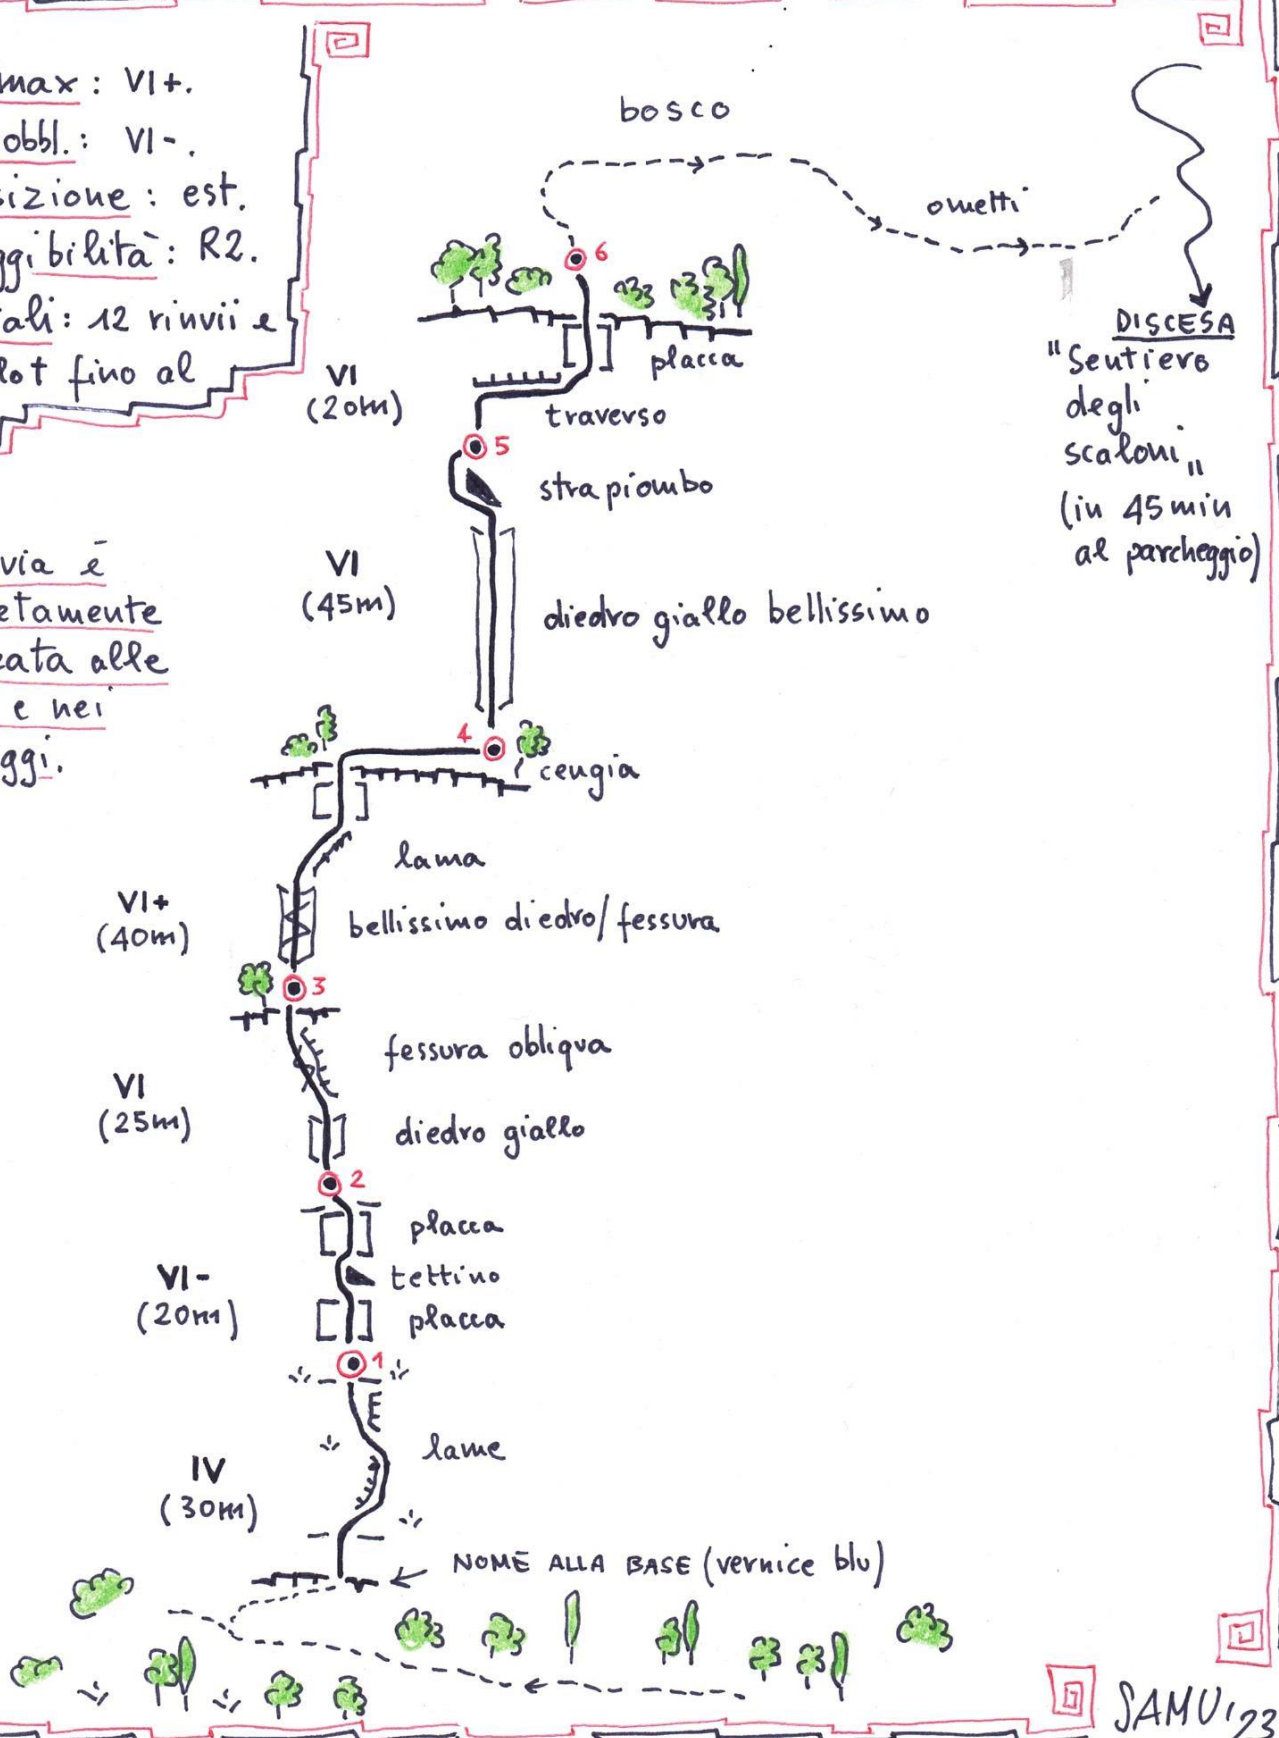 max: VI+.
obbl.: VI-.
sizione: est.
ggibilità: R2.
ali: 12 rinvii e
lot fino al
via è
etamente
zata alle
e nei
ggi.
bosco
ometti
6
DISCESA
"Sentiero
degli
scaloni"
(in 45min
al parcheggio)
placca
VI
(20m)
traverso
5
strapiombo
VI
(45m)
diedro giallo bellissimo
4
cengia
lama
VI+
(40m)
bellissimo diedro/fessura
3
fessura obliqua
VI
(25m)
diedro giallo
2
placca
VI-
(20m)
tettino
placca
1
lame
IV
(30m)
NOME ALLA BASE (vernice blu)
SAMU'23